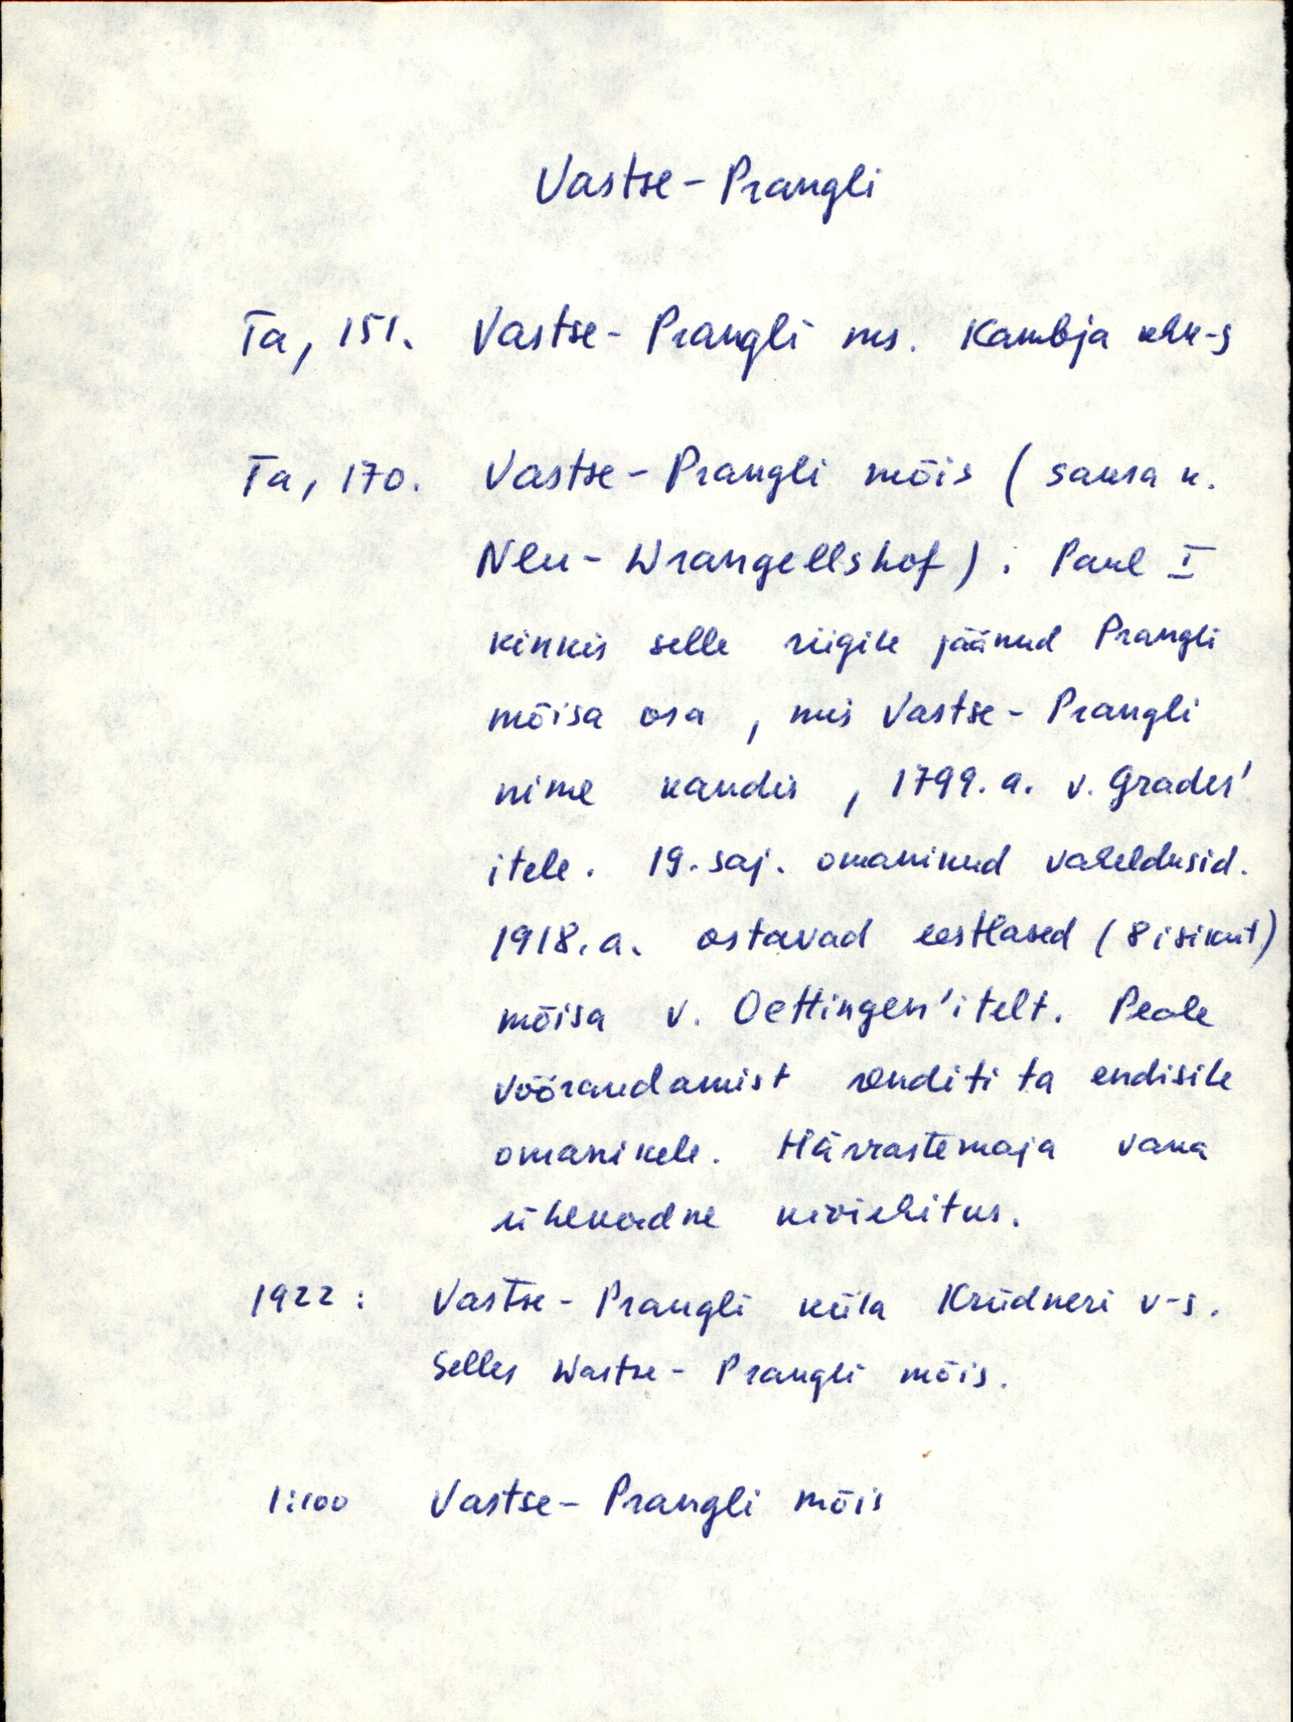 Vastse-Prangli
Ta, 151. Vastse-Prangli ms. Kambja khk-s
Ta, 170. Vastse-Prangli mõis (saksa k.
Neu-Wrangellshof). Paul I
kinkis selle riigile jäänud Prangli
mõisa osa, mis Vastse-Prangli
nime kandis, 1799.a. v. Grades'
itele. 19.saj. omanikud vaheldusid.
1918.a. ostavad eestlased (8 isikut)
mõisa v. Oettingen'itelt. Peale
võõrandamist renditi ta endisile
omanikele. Härrastemaja vana
ühekordne kiviehitus.
1922: Vastse-Prangli küla Krüdneri v-s.
Selles Wastse-Prangli mõis.
1:100 Vastse-Prangli mõis